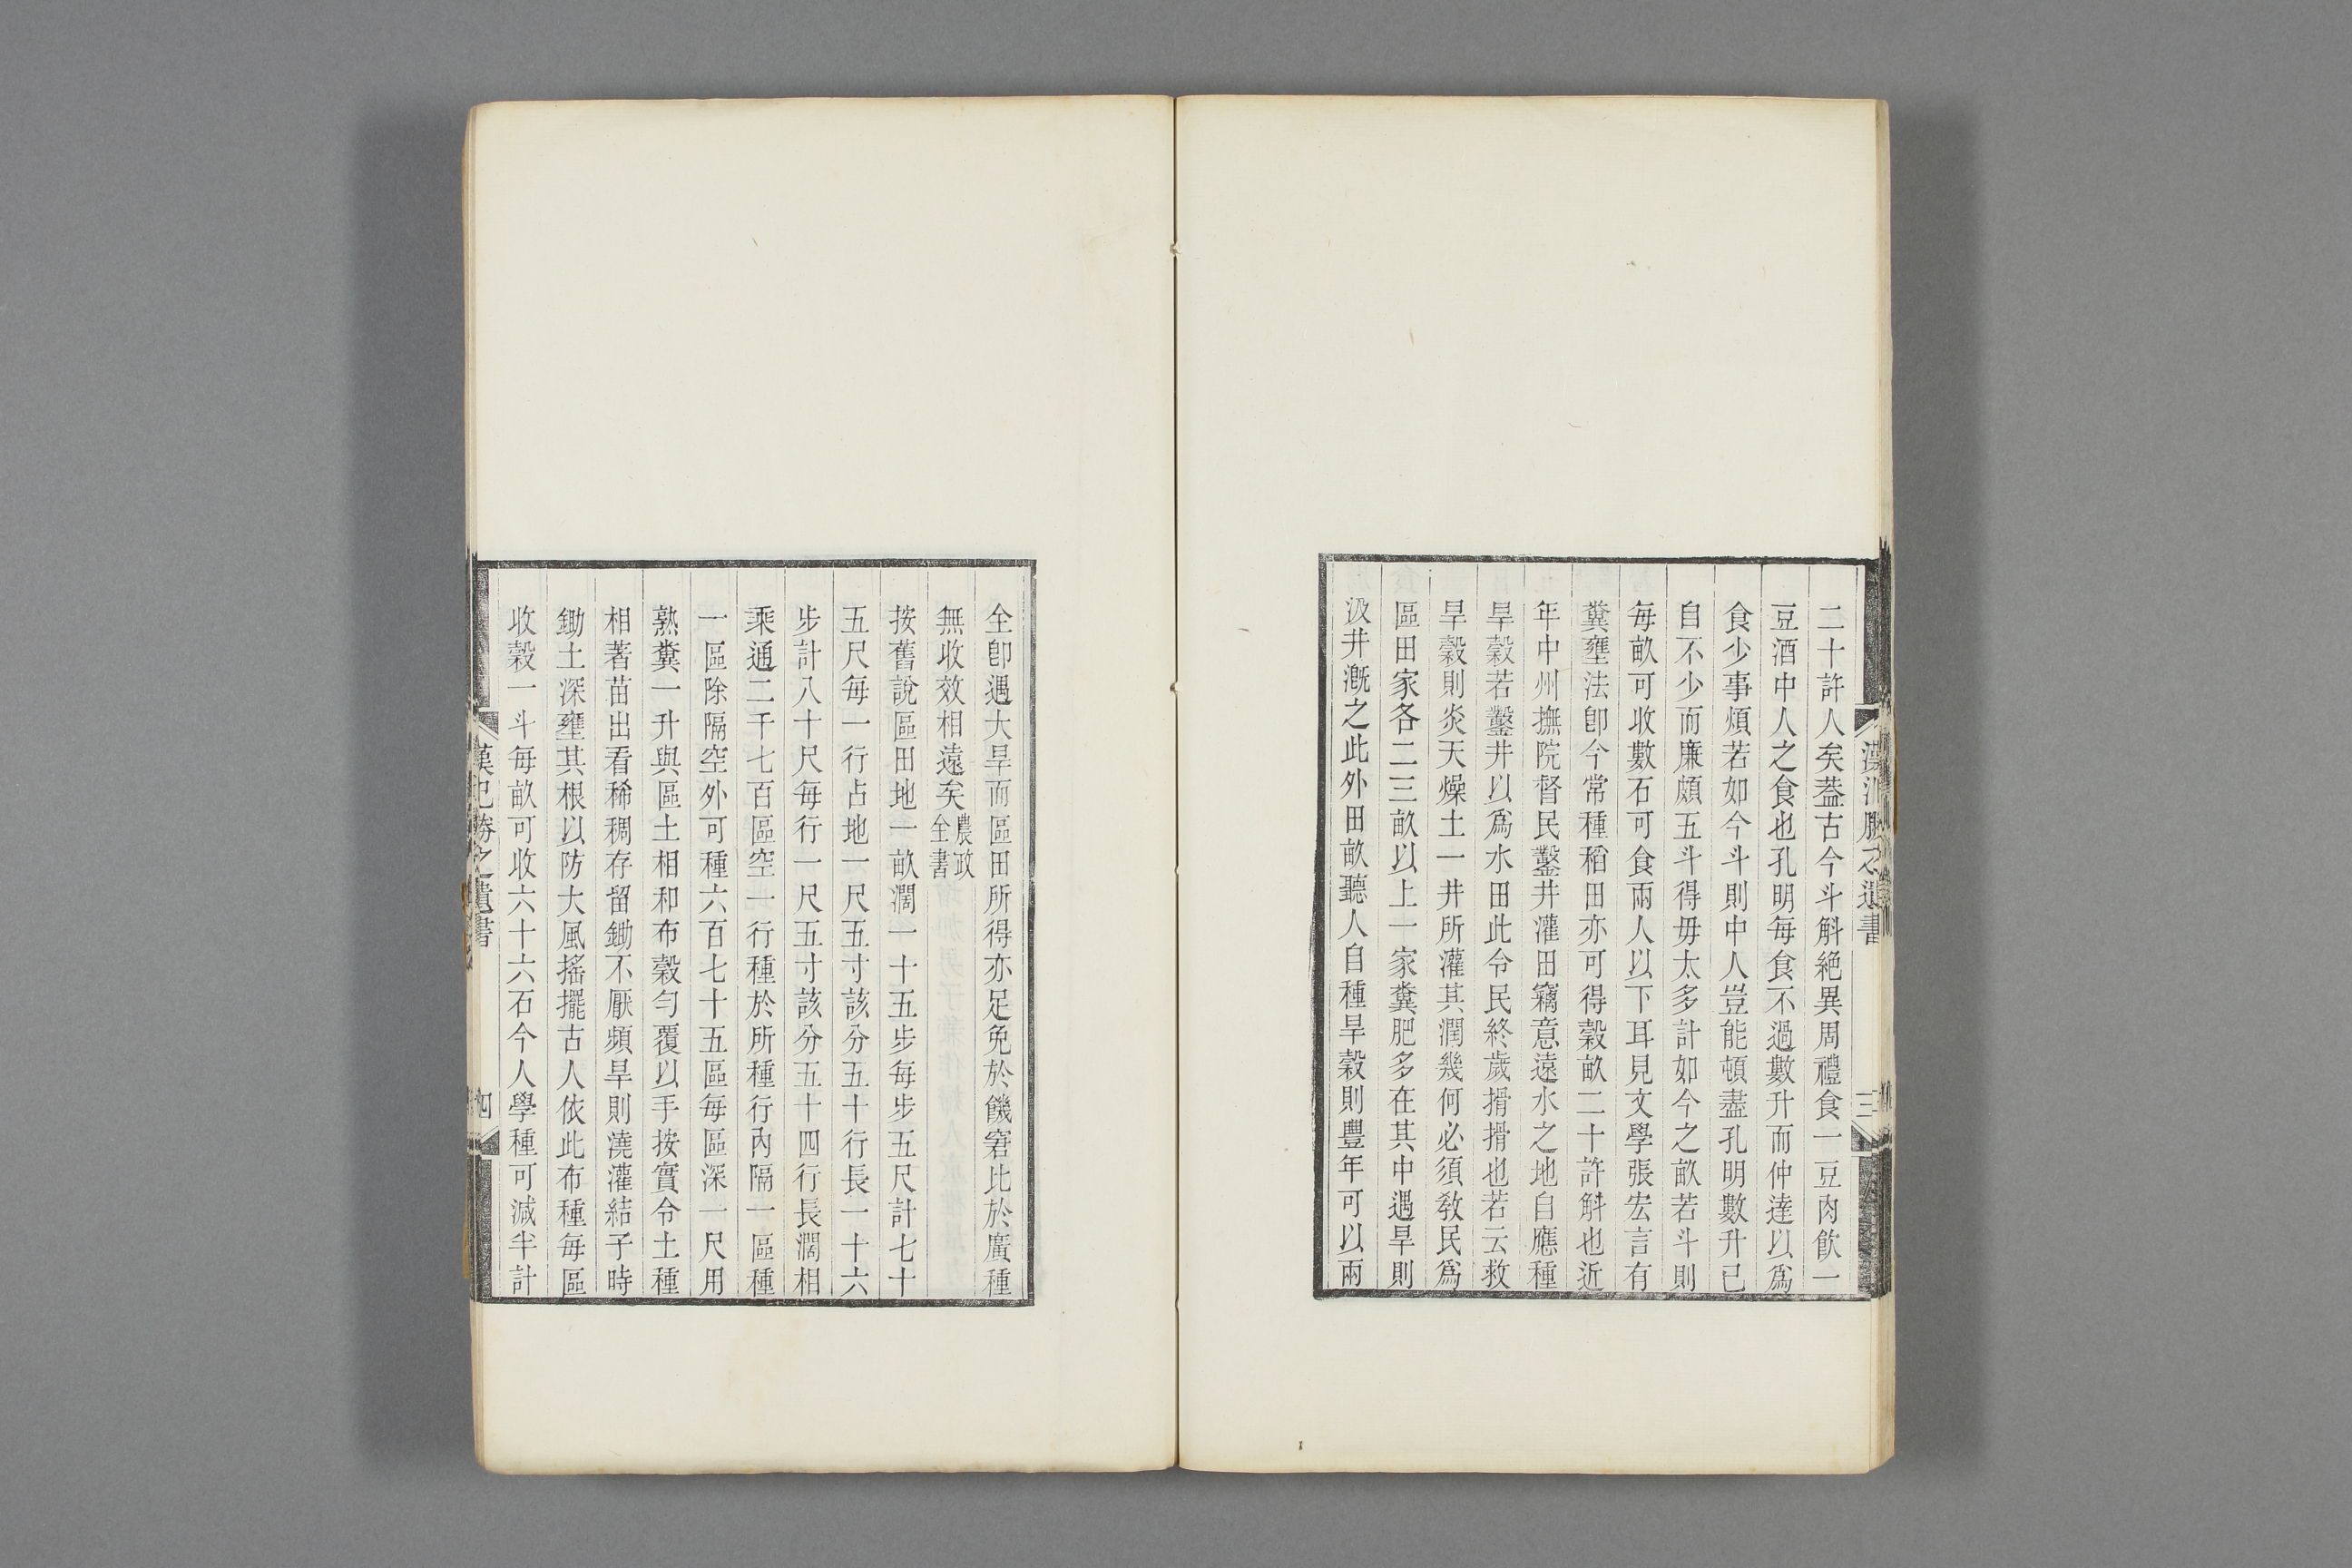 二十許人矣葢古今斗斛絶異周禮食一豆肉飮一
豆酒中人之食也孔明每食不過數升而仲達以爲
食少事煩若如今斗則中人豈能頓盡孔明數升已
自不少而廉頗五斗得毋太多計如今之畝若斗則
每畝可收數石可食兩人以下耳見文學張宏言有
糞壅法卽今常種稻田亦可得穀畝二十許斛也近
年中州撫院督民鑿井灌田竊意遠水之地自應種
旱穀若鑿井以爲水田此令民終歲搰搰也若云救
旱穀則炎天燥土一井所灌其潤幾何必須敎民爲
區田家各二三畝以上一家糞肥多在其中遇旱則
汲井漑之此外田畝聽人自種旱穀則豐年可以兩
漢氾勝之遺書
三
全卽遇大旱而區田所得亦足免於饑窘比於廣種
無收效相遠矣農政全書
按舊說區田地一畝濶一十五步每步五尺計七十
五尺每一行占地一尺五寸該分五十行長一十六
步計八十尺每行一尺五寸該分五十四行長濶相
乘通二千七百區空一行種於所種行內隔一區種
一區除隔空外可種六百七十五區每區深一尺用
熟糞一升與區土相和布穀勻覆以手按實令土種
相著苗出看稀稠存留鋤不厭頻旱則澆灌結子時
鋤土深壅其根以防大風搖擺古人依此布種每區
收穀一斗每畝可收六十六石今人學種可減半計
漢氾勝之遺書
四